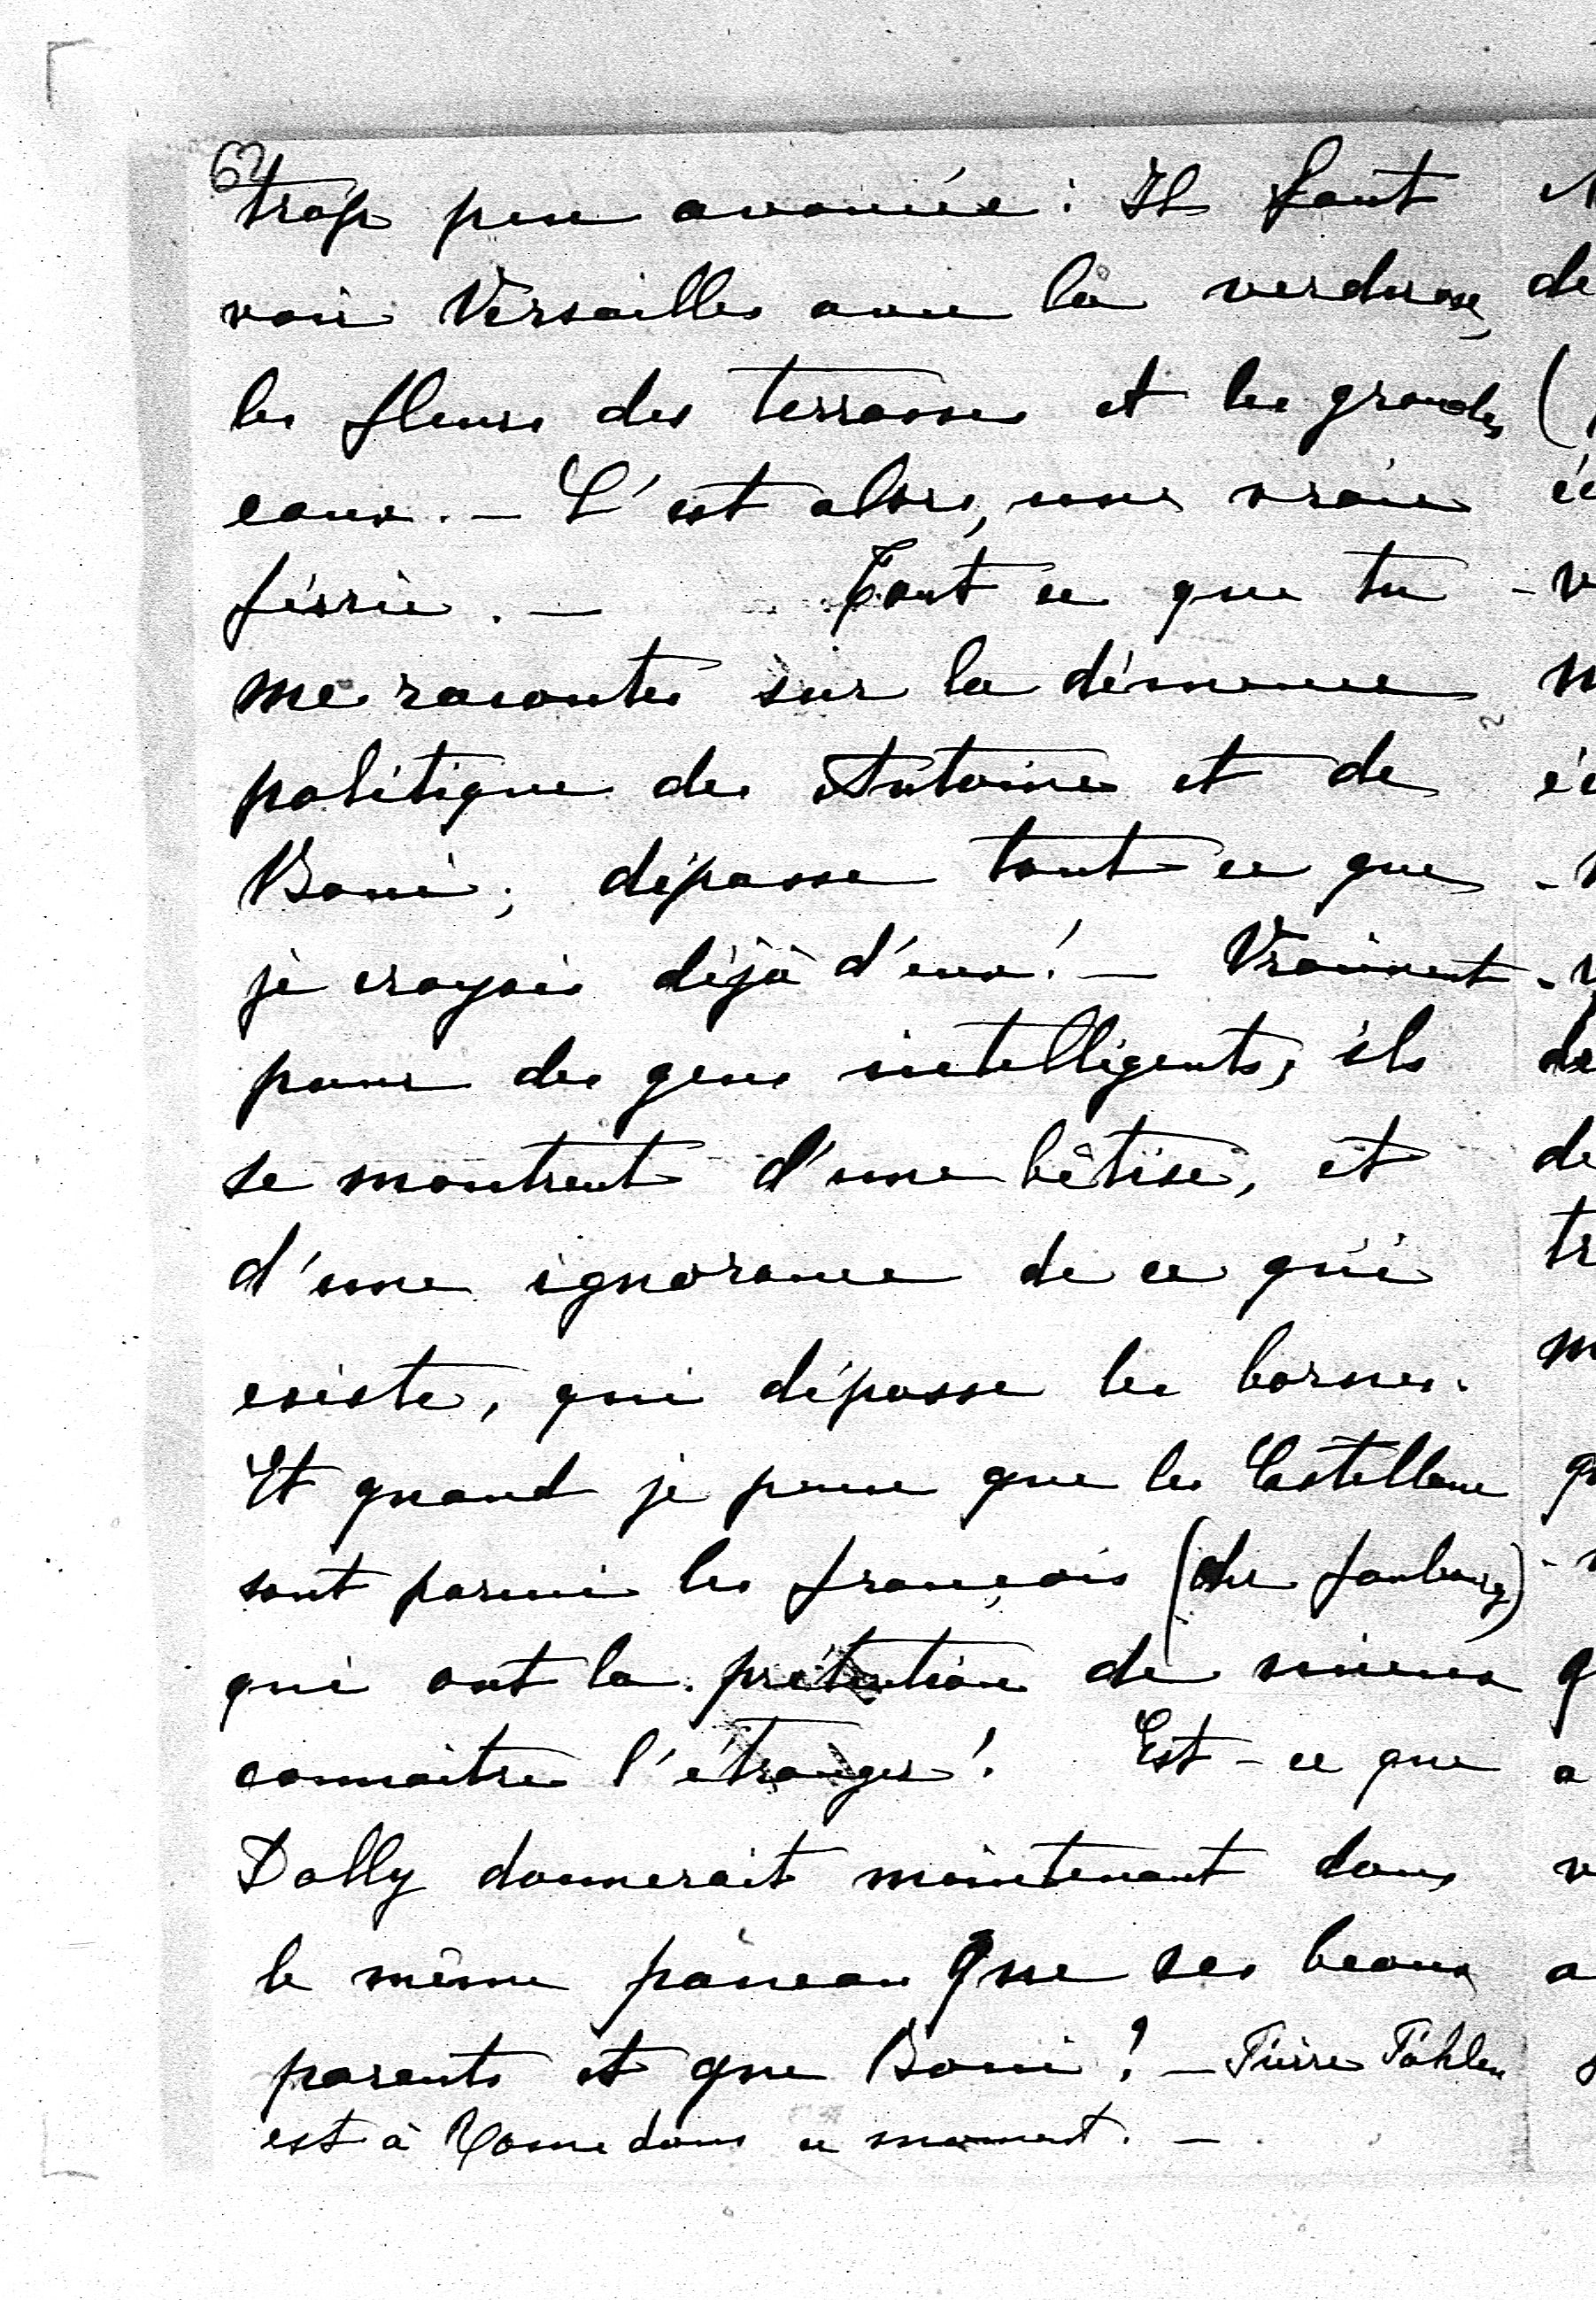 62
trop peu avancée: Il faut
voir Versailles avec la verdure,
les fleurs des terrasses et les grandes
eaux. — C'est alors, une vraie
féérie. — Tout ce que tu
me racontes sur la démence
politique des Antoine et de
Boni; dépasse tout ce que
je croyais déjà d'eux! — Vraiment
pour des gens intelligents, ils
se montrent d'une bêtise, et
d'une ignorance de ce qui
existe, qui dépasse les bornes.
Et quand je pense que les Castellane
sont parmi les français (du faubourg)
qui ont la prétention de mieux
connaitre l'étranger! Est-ce que
Dolly donnerait maintenant dans
le même panneau que ses beaux
parents et que Boni? — Pierre Pahlen
est à Rome dans ce moment. —